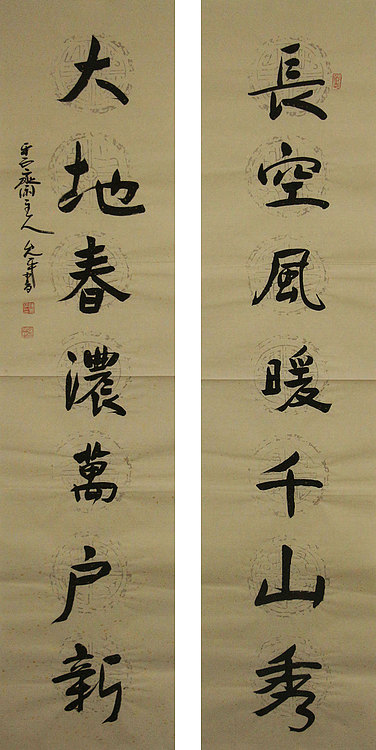 長空風暖千山秀
大地春濃萬户新
齋主人